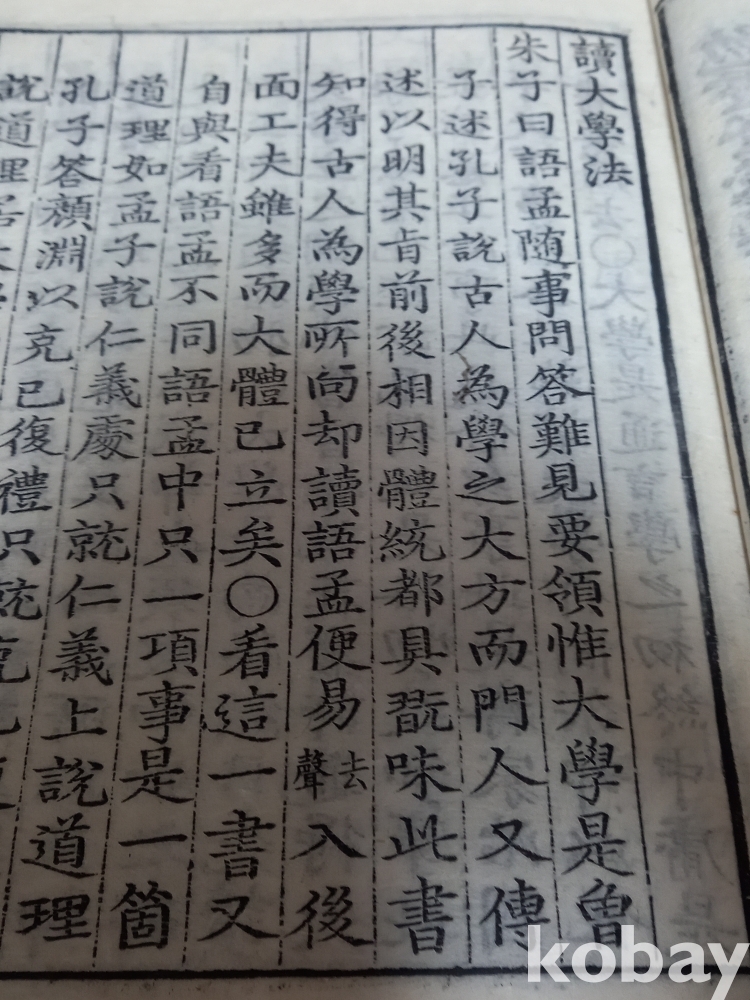 讀大學法
朱子曰語孟隨事問答難見要領惟大學是曾
子述孔子說古人為學之大方而門人又傳
述以明其旨前後相因體統都具翫味此書
知得古人為學所向却讀語孟便易去聲入後
面工夫雖多而大體已立矣○看這一書又
自與看語孟不同語孟中只一項事是一箇
道理如孟子說仁義處只就仁義上說道理
孔子答顏淵以克己復禮只就克
說道理
kobay